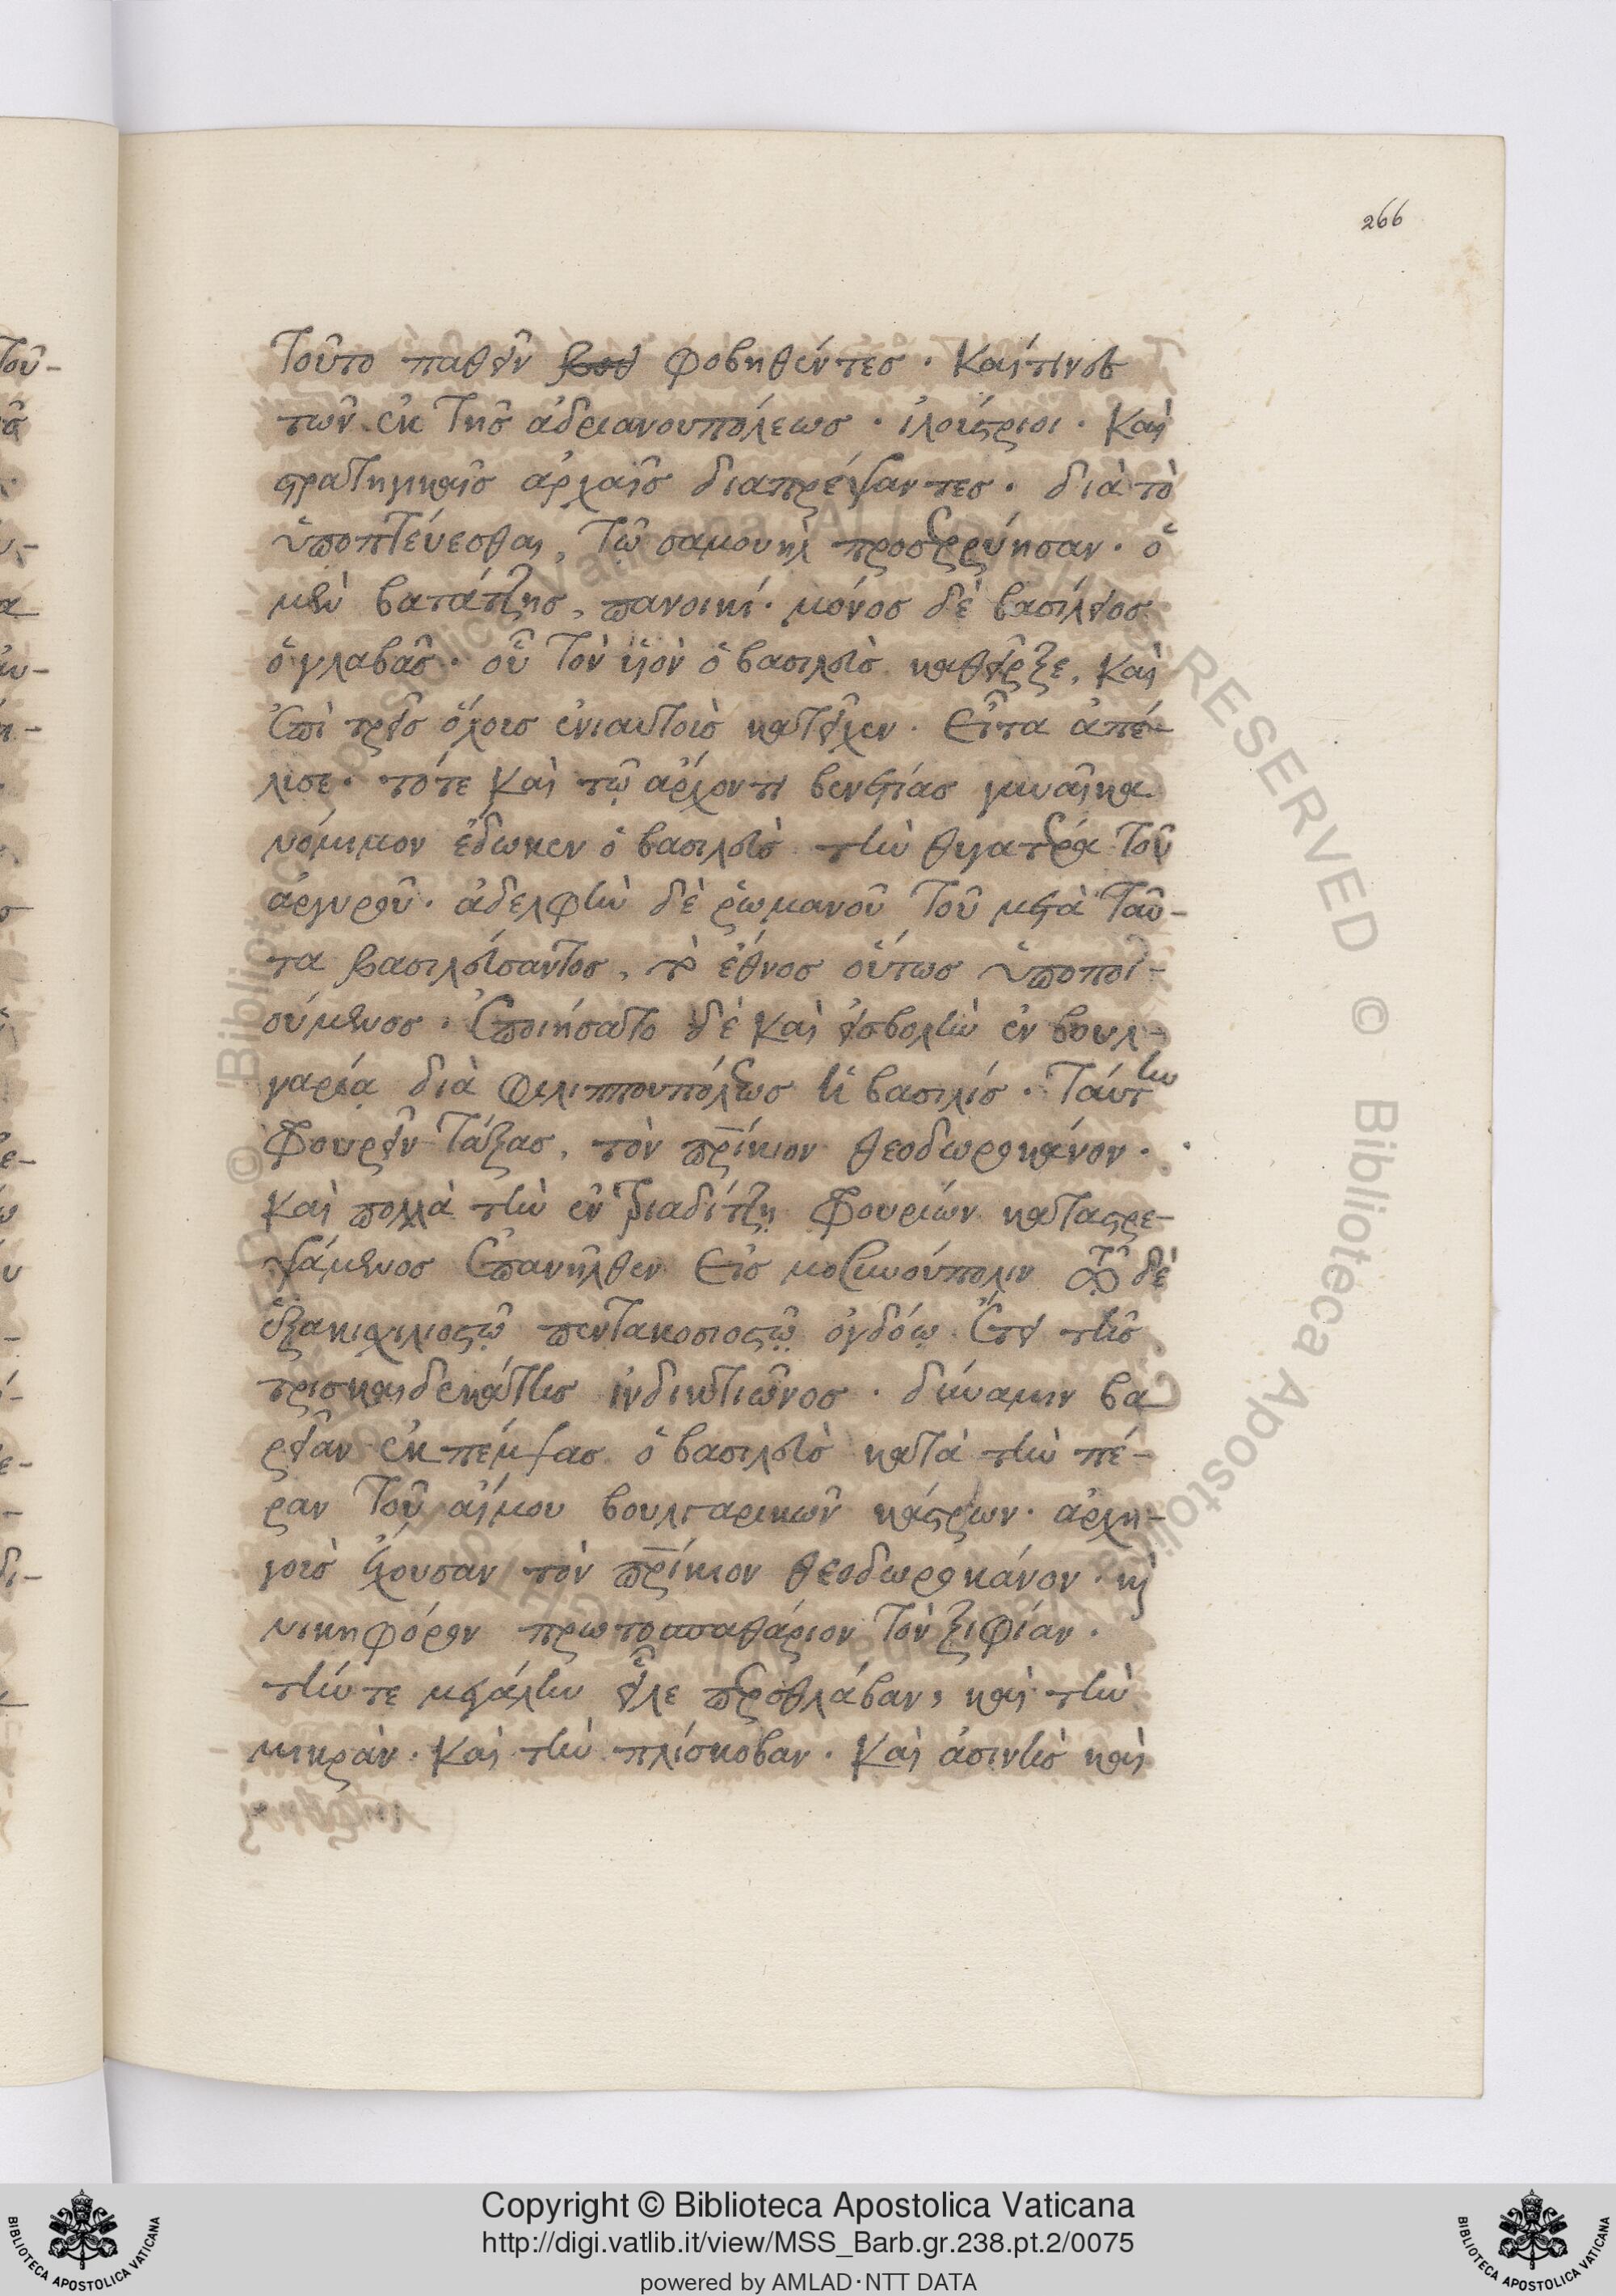 266
Τοῦτο παθεῖν φοβηθέντες · καί τινες
τῶν ἐκ τῆς ἀδριανουπόλεως · ἰλούστριοι · καὶ
στρατηγικαῖς ἀρχαῖς διαπρέψαντες · διὰ τὸ
ὑποπτεύεσθαι, τῷ σαμουὴλ προσερρύησαν · ὁ
μὲν βατάτζης, πανοικί · μόνος δὲ βασίλειος
ὁ γλαβᾶς · οὗ τὸν υἱὸν ὁ βασιλεὺς καθεῖρξε, καὶ
ἐπὶ τρεῖς ὅλους ἐνιαυτοὺς κατεῖχεν · Εἶτα ἀπέ-
λυσε · τότε καὶ τῷ ἄρχοντι βενετίας γυναῖκα
νόμιμον ἔδωκεν ὁ βασιλεὺς τὴν θυγατέρα τοῦ
ἀργυροῦ · ἀδελφὴν δὲ ῥωμανοῦ τοῦ μετὰ ταῦ-
τα βασιλεύσαντος, τὸ ἔθνος οὕτως ὑποποι-
ούμενος · Ἐποιήσατο δὲ καὶ εἰσβολὴν ἐν βουλ-
γαρίᾳ διὰ φιλιππουπόλεως ὁ βασιλεύς · Ταύτην
φρουρεῖν τάξας, τὸν πρίκιον θεοδωροκάνον ·
καὶ πολλὰ τῶν ἐν τριαδίτζῃ φρουρίων καταστρε-
ψάμενος ἐπανῆλθεν εἰς μοσυνούπολιν τῷ δὲ
ἑξακισχιλιοστῷ πεντακοσιοστῷ ὀγδόῳ ἔτει τῆς
τρισκαιδεκάτης ἰνδικτιῶνος · δύναμιν βα
ρεῖαν ἐκπέμψας ὁ βασιλεὺς κατὰ τῶν πέ-
ραν τοῦ αἵμου βουλγαρικῶν κάστρων · ἀρχη-
γοὺς ἔχουσαν τὸν πρίκιον θεοδωροκάνον · καὶ
νικηφόρον πρωτοσπαθάριον τὸν ξιφίαν ·
τήν τε μεγάλην εἷλε περσθλάβαν, καὶ τὴν
μικράν · καὶ τὴν πλίσκοβαν · καὶ ἀσινὴς καὶ
© Biblioteca Apostolica Vaticana ALL RIGHTS RESERVED © Biblioteca Apostolica
BIBLIOTECA APOSTOLICA VATICANA
Copyright © Biblioteca Apostolica Vaticana
http://digi.vatlib.it/view/MSS_Barb.gr.238.pt.2/0075
powered by AMLAD·NTT DATA
BIBLIOTECA APOSTOLICA VATICANA